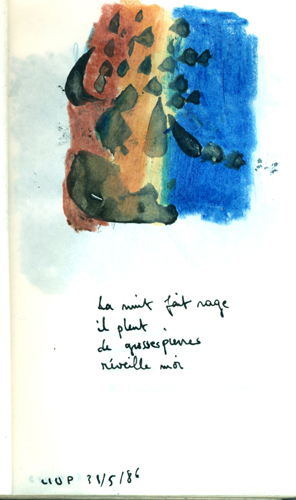 La nuit fait rage
il pleut.
de grosses pierres
réveille moi
31/5/86